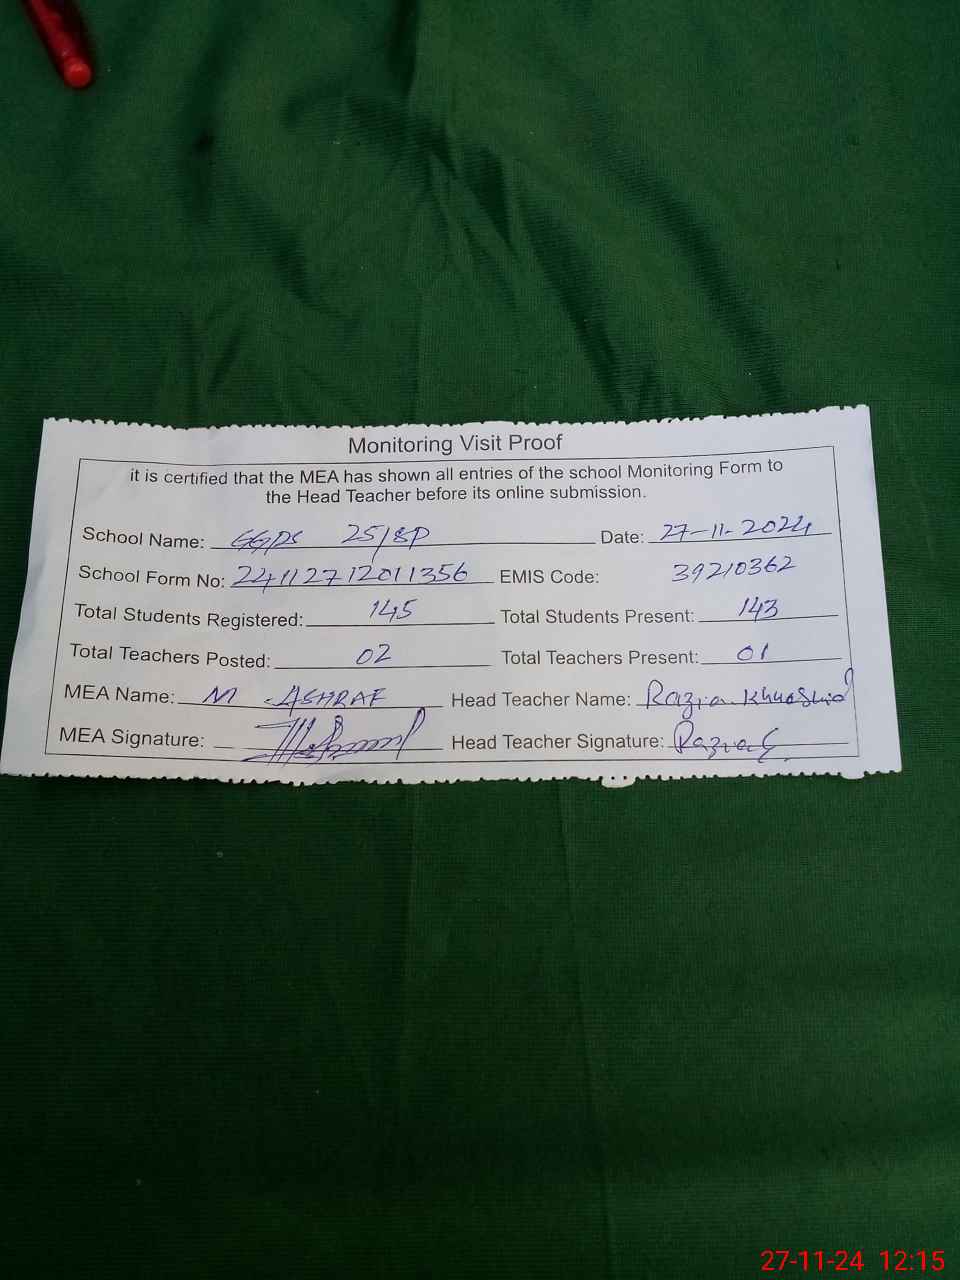 Monitoring Visit Proof
it is certified that the MEA has shown all entries of the school Monitoring Form to
the Head Teacher before its online submission.
School Name: GGPS 25/SP Date: 27-11-2024
School Form No: 24112712011356 EMIS Code: 39210362
Total Students Registered: 145 Total Students Present: 143
Total Teachers Posted: 02 Total Teachers Present: 01
MEA Name: M-ASHRAF Head Teacher Name: Razia Khurshid
MEA Signature: Head Teacher Signature: Razia
27-11-24 12:15